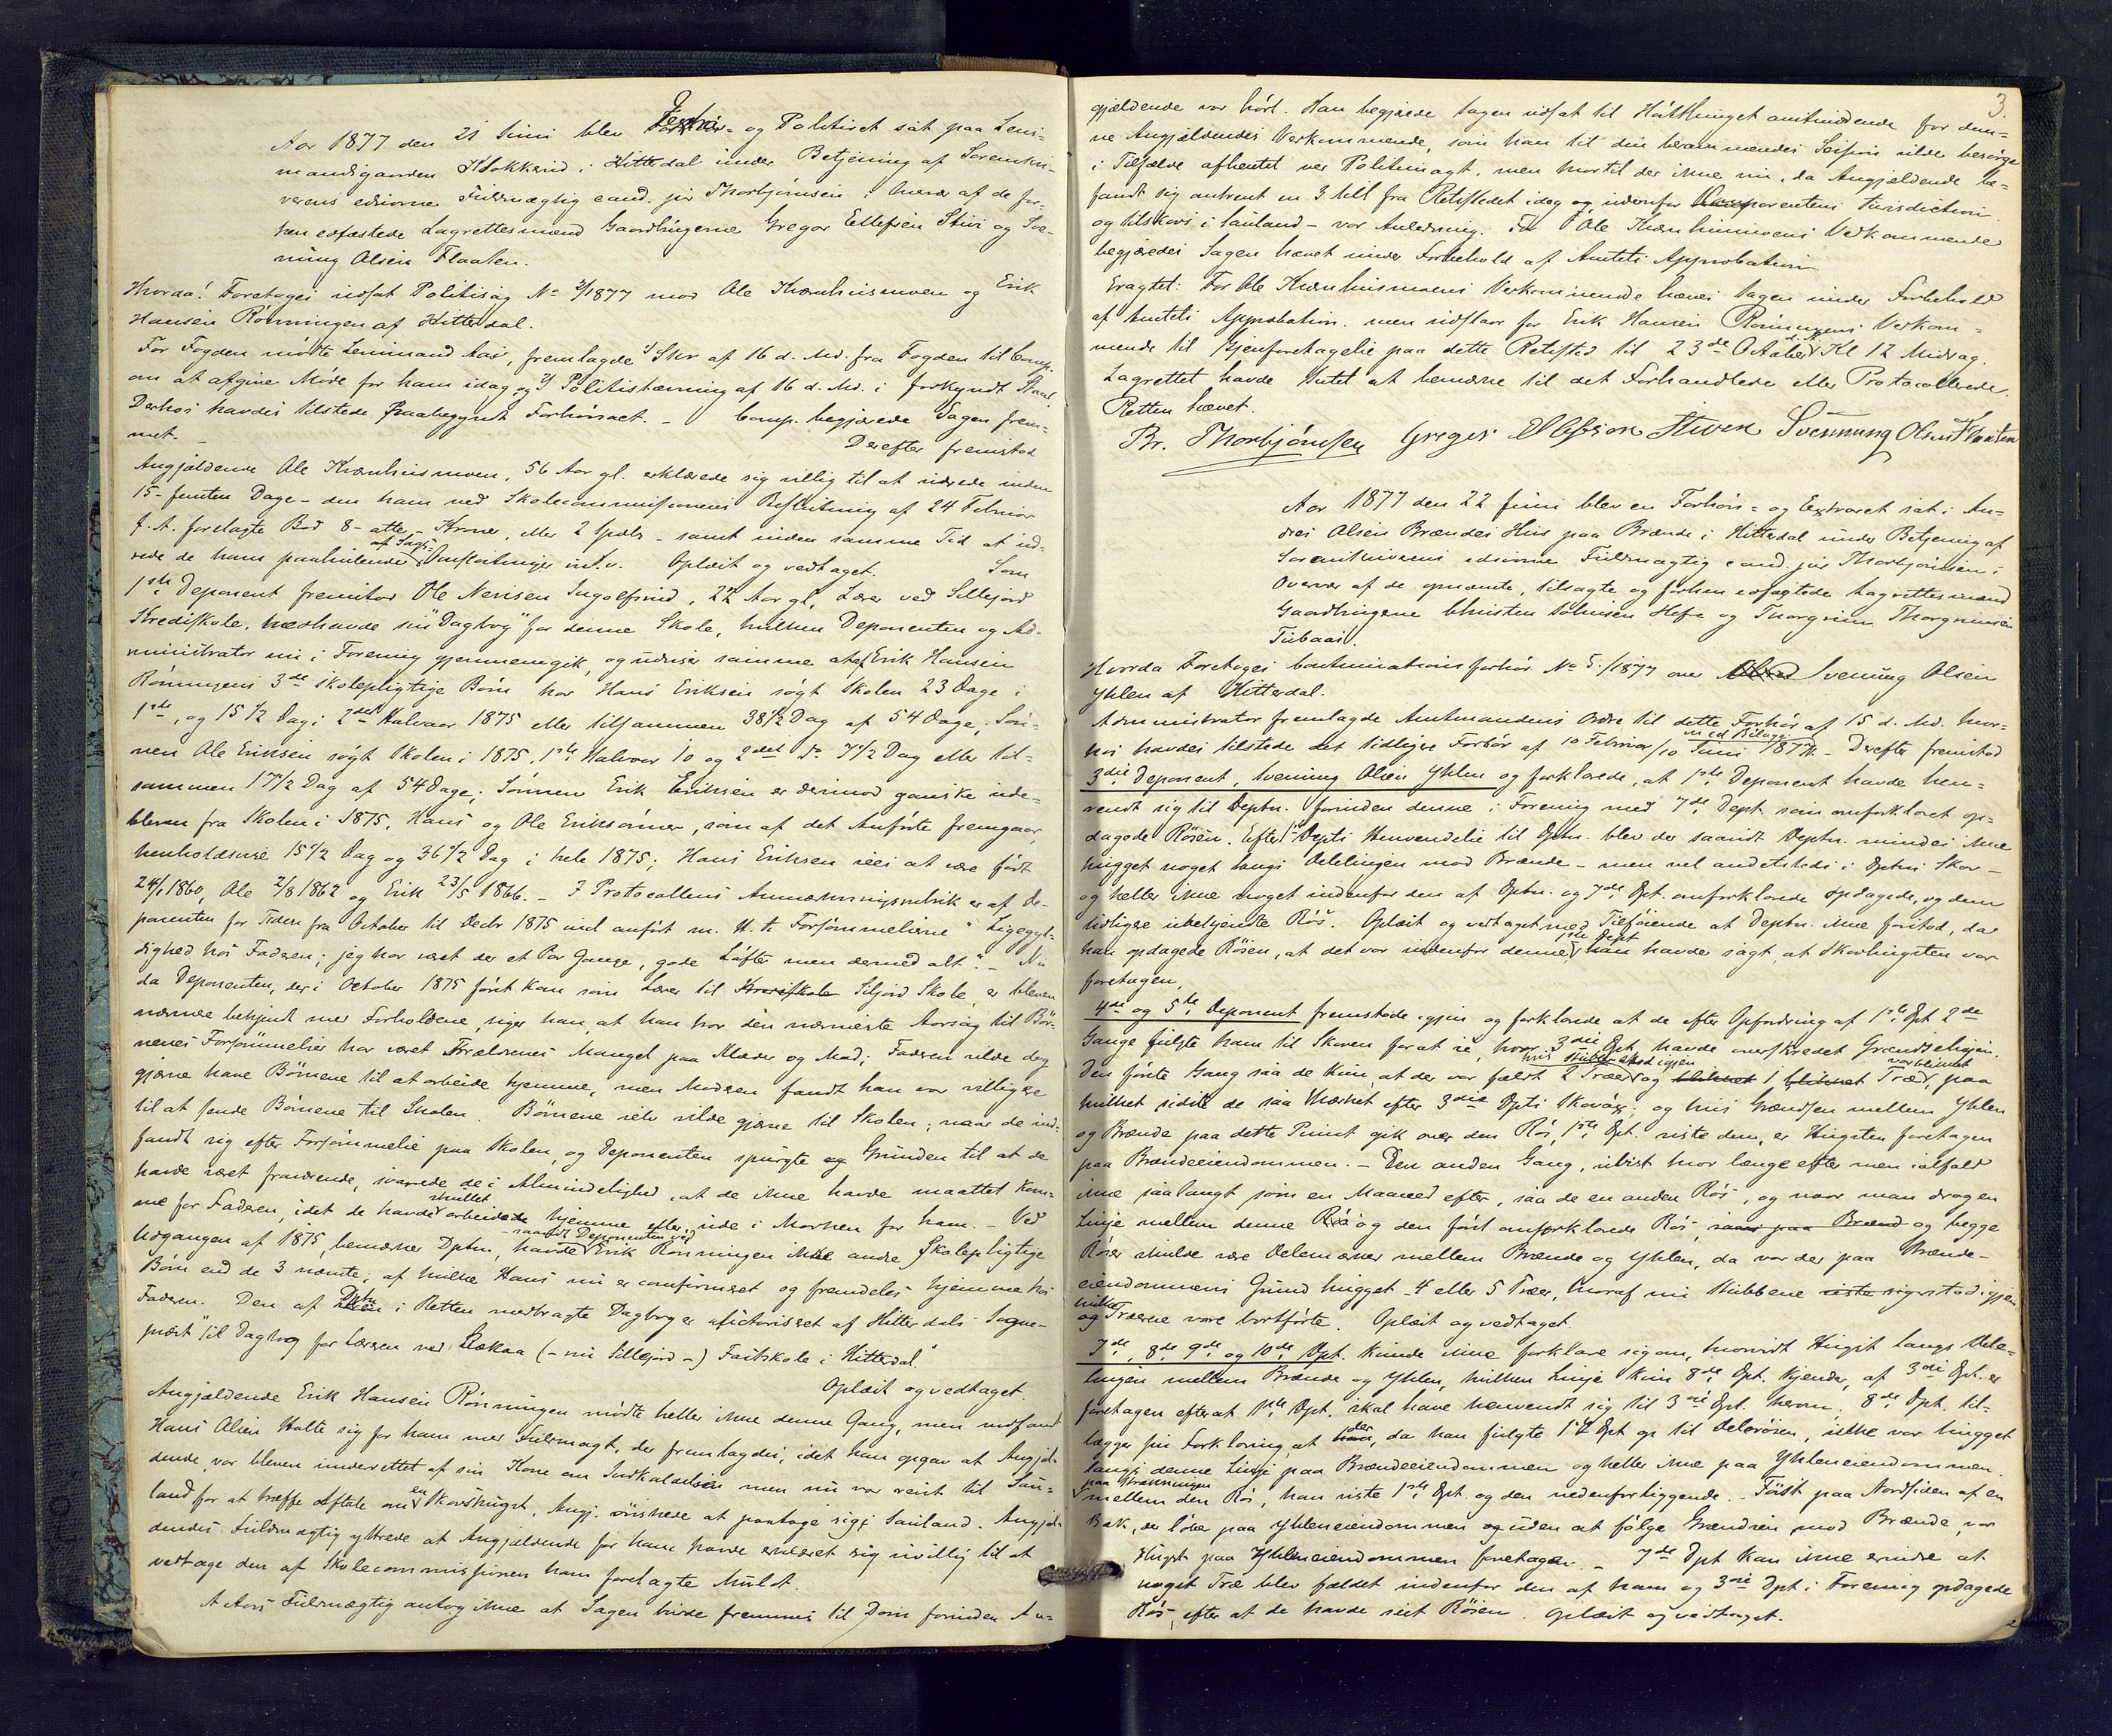 Aar 1877 den 21 Juni blev Forhörs- og Politiret sat paa Lens-
mandsgaarden Klokkerud i Hitterdal under Betjening af Sorenskri-
verens edsvorne Fuldmægtig cand. jur Thorbjörnsen i Overvær af de for-
hen edfæstede Lagrettesmænd Gaardbrugerne Gregar Ellefsen Stivi og Sve-
nung Olsen Flaaten.
Hvorda! Foretoges udsat Politisag No 2/1877 mod Ole Kvænhusmoen og Erik
Hansen Rönningen af Hitterdal.
For Fogden mödte Lensmand Aas, fremlagde 1/ Skr af 16 d. Md. fra Fogden til Comp.
om at afgive Möde for ham idag, og 2/ Politistævning af 16 d. Md. i forkyndt Stand.
Derhos havdes tilstede paabegyndt Forhörsact. - Comp. begjærede Sagen frem-
met. - Derefter fremstod
Angjældende Ole Kvænhusmoen, 56 Aar gl. erklærede sig villig til at udrede inden
15 - femten Dage - den ham ved Skolecommissionens Beslutning af 24 Februar
f. A. forelagte Bod 8 - atte - Kroner, eller 2 Spdlr - samt inden samme Tid at ud-
rede de ham paahvilende af Sags-Omkostninger m. v. Oplæst og vedtaget. Som
1ste Deponent fremstod Ole Nerisen Ingolfsrud, 22 Aar gl, Lærer ved Sillejord
Kredsskole, medhavde sin "Dagbog" for denne Skole, hvilken Deponenten og Ad-
ministrator nu i Forening gjennemgik, og udviser samme at af Erik Hansen
Rönningens 3de skolepligtige Börn har Hans Eriksen sögt Skolen 23 Dage i
1ste, og 15 1/2 Dag i 2det Halvaar 1875 eller tilsammen 38 1/2 Dag af 54 Dage; Sön-
nen Ole Eriksen sögt Skolen i 1875, 1ste Halvaar 10 og 2det do 7 1/2 Dag eller til-
sammen 17 1/2 Dag af 54 Dage; Sönnen Erik Eriksen er derimod ganske ude-
bleven fra Skolen i 1875, Hans og Ole Erikssönner, som af det Anförte fremgaar,
henholdsvis 15 1/2 Dag og 36 1/2 Dag i hele 1875; Hans Eriksen sees at være födt
24/1 1860, Ole 2/8 1862 og Erik 23/5 1866. - I Protocollens Anmærkningsrubrik er af De-
ponenten for Tiden fra October til Decbr 1875 incl anfört m. H. t. Forsömmelserne "Ligegyl-
dighed hos Faderen; jeg har været der et Par Gange, gode Löfter men dermed alt". - Nu
da Deponenten, der i October 1875 först kom som Lærer til Kredsskolen Siljord Skole, er bleven
nærmere bekjendt med Forholdene, siger han, at han tror den nærmeste Aarsag til Bör-
nenes Forsömmelser har været Forældrenes Mangel paa Klæder og Mad; Faderen vilde dog
gjerne have Börnene til at arbeide hjemme, men Moderen fandt han var villigere
til at sende Börnene til Skolen. Börnene selv vilde gjerne til Skolen; naar de ind-
fandt sig efter Forsömmelse paa Skolen, og Deponenten spurgte og Grunden til at de
havde været fraværende, svarede de i Almindelighed, at de ikke havde maattet kom-
me for Faderen, idet de havde skullet arbeidede hjemme eller ude i Marken for ham. - Ved
Udgangen af 1875, bemærker Dptn, havde - saavidt Deponenten ved - Erik Rönningen ikke andre skolepligtige
Börn end de 3 nævnte; af hvilke Hans nu er confirmeret og fremdeles hjemme hos
Faderen. Den af Dptn i Retten medbragte Dagbog er autoriseret af Hitterdals Sogne-
præst "til Dagbog for Læreren ved Bækaa (- nu Sillejord -) Fastskole i Hitterdal."
Oplæst og vedtaget.
Angjældende Erik Hansen Rönningen mödte heller ikke denne Gang, men indfandt
Hans Olsen Holte sig for ham med Fuldmagt, der fremlagdes, idet han opgav at Angjæl-
dende var bleven underrettet af sin Kone om Indkaldelsen men nu var reist til Sau-
land for at træffe Aftale om en Skovshugst, Angj. önskede at paatage sig i Sauland. Angjæl-
dendes Fuldmægtig yttrede at Angjældende for ham havde erklæret sig uvillig til at
vedtage den af Skolecommissionen ham forelagte Mulct.
Actors Fuldmægtig antog ikke at Sagen burde fremmes til Dom forinden An-
3.
gjældende var hört. Han begjærede Sagen udsat til Hösttinget anstundende for den-
ne Angjældendes Vedkommende, som han til den berammendes Session vilde besörge
i Tilfælde afhentet ved Politimagt, men hvortil der ikke nu, da Angjældende be-
fandt sig omtrent en 3 Mil fra Retsstedet idag og udenfor Comparentens Jurisdiction
og tilskovs i Sauland - var Anledning. For Ole Kvænhusmoens Vedkommende
begjæredes Sagen hævet under Forbehold af Amtets Approbation
Eragtet: For Ole Kvænhusmoens Vedkommende hæves Sagen under Forbehold
af Amtets Approbation, men udstaar for Erik Hansen Rönningens Vedkom-
mende til Gjenforetagelse paa dette Retssted til 23de October d. A. Kl 12 Middag.
Lagrettet havde Intet at bemærke til det Forhandlede eller Protocollerede.
Retten hævet.
Br. Thorbjörnsen Greger Ellefsen Stiven Svennung Olsen Flaaten
Aar 1877 den 22 Juni blev en Forhörs- og Extraret sat i An-
dres Olsen Brændes Hus paa Brænde i Hitterdal under Betjening af
Sorenskriverens edsvorne Fuldmægtig cand. jur Thorbjörnsen i
Overvær af de opnævnte, tilsagte og forhen edfæstede Lagrettesmænd
Gaardbrugerne Christen Hefre og Thorgrim Thorgrimsen
Tubaas.
Hvorda Foretoges Continuationsforhör No 5/1877 over Svenung Olsen
Yhlen af Hitterdal.
Administrator fremlagde Amtmandens Ordre til dette Forhör af 15 d. Md. hvor-
hos havdes tilstede det tidligere Forhör af 10 Februar/10 Juni 1877 med Bilage. - Derefter fremstod
3die Deponent, Svenung Olsen Yhlen og forklarede, at 1ste Deponent havde hen-
vendt sig til Deptn. forinden denne i Forening med 7de Dept. som omforklaret op-
dagede Rösen. Efter 1ste Depts Henvendelse til Dptn. blev der saavidt Deptn. mindes ikke
hugget noget langs Delelingen mod Brænde - men vel andetsteds i Dptns Skov -
og heller ikke noget indenfor den af Dptn. og 7de Dpt. omforklarede opdagede, og dem
tidligere ubekjendte Rös. Oplæst og vedtaget med Tilföiende at Deptn. ikke forstod, da
han opdagede Rösen, at det var udenfor denne, 1ste Dept han havde sagt, at Skovhugsten var
foretagen,
4de og 5te Deponent fremstode igjen og forklarede at de efter Opfordring af 1ste Dpt 2de
Gange fulgte ham til Skoven for at se, hvor 3die Dpt. havde overskredet Grændselinjen.
Den förste Gang saa de kun, at der var fældt 2 Træer, hvis Stubber stod igjen og blinket 1 blinket Træ, var blinket paa
hvilket sidste de saa Mærket efter 3die Dpts Skovöxe; og hvis Grændsen mellem Yhlen
og Brænde paa dette Punct gik over den Rös, 1ste Dpt. viste dem, er Hugsten foretagen
paa Brændeeiendommen. - Den anden Gang, uvist hvor længe efter men ialfald
ikke saa langt som en Maaned efter, saa de en anden Rös, og naar man drager
Linje mellem denne Rös og den först omforklarede Rös, saar paa Brænd og begge
Röser skulde være Delemærker mellem Brænde og Yhlen, da var der paa Brænde-
eiendommens Grund hugget 4 eller 5 Træer, hvoraf nu Stubbene viste sig stod igjen
hvilke og Træerne vare bortförte. Oplæst og vedtaget.
7de, 8de, 9de og 10de Dpt. kunde ikke forklare sig om, hvorvidt Hugst langs Dele-
lingen mellem Brænde og Yhlen, hvilken Linje kun 8de Dpt. kjender, af 3die Dpt. er
foretagen efterat 1ste Dpt. skal have henvendt sig til 3die Dpt. herom. 8de Dpt. til-
lægger sin Forklaring at der, da han fulgte 1ste Dpt op til Delerösen, ikke var hugget
langs denne Linje paa Brændeeiendommen og heller ikke paa Yhleneiendommen
paa Strækningen mellem den Rös, han viste 1ste Dpt. og den nedenforliggende. - Först paa Nordsiden af en
Bæk, der löber paa Yhleneiendommen og uden at fölge Grændsen mod Brænde, var
Hugst paa Yhleneiendommen foretagen. - 7de Dpt kan ikke erindre at
noget Træ blev fældet indenfor den af ham og 3die Dpt i Forening opdagede
Rös, efter at de havde seet Rösen. Oplæst og vedtaget.